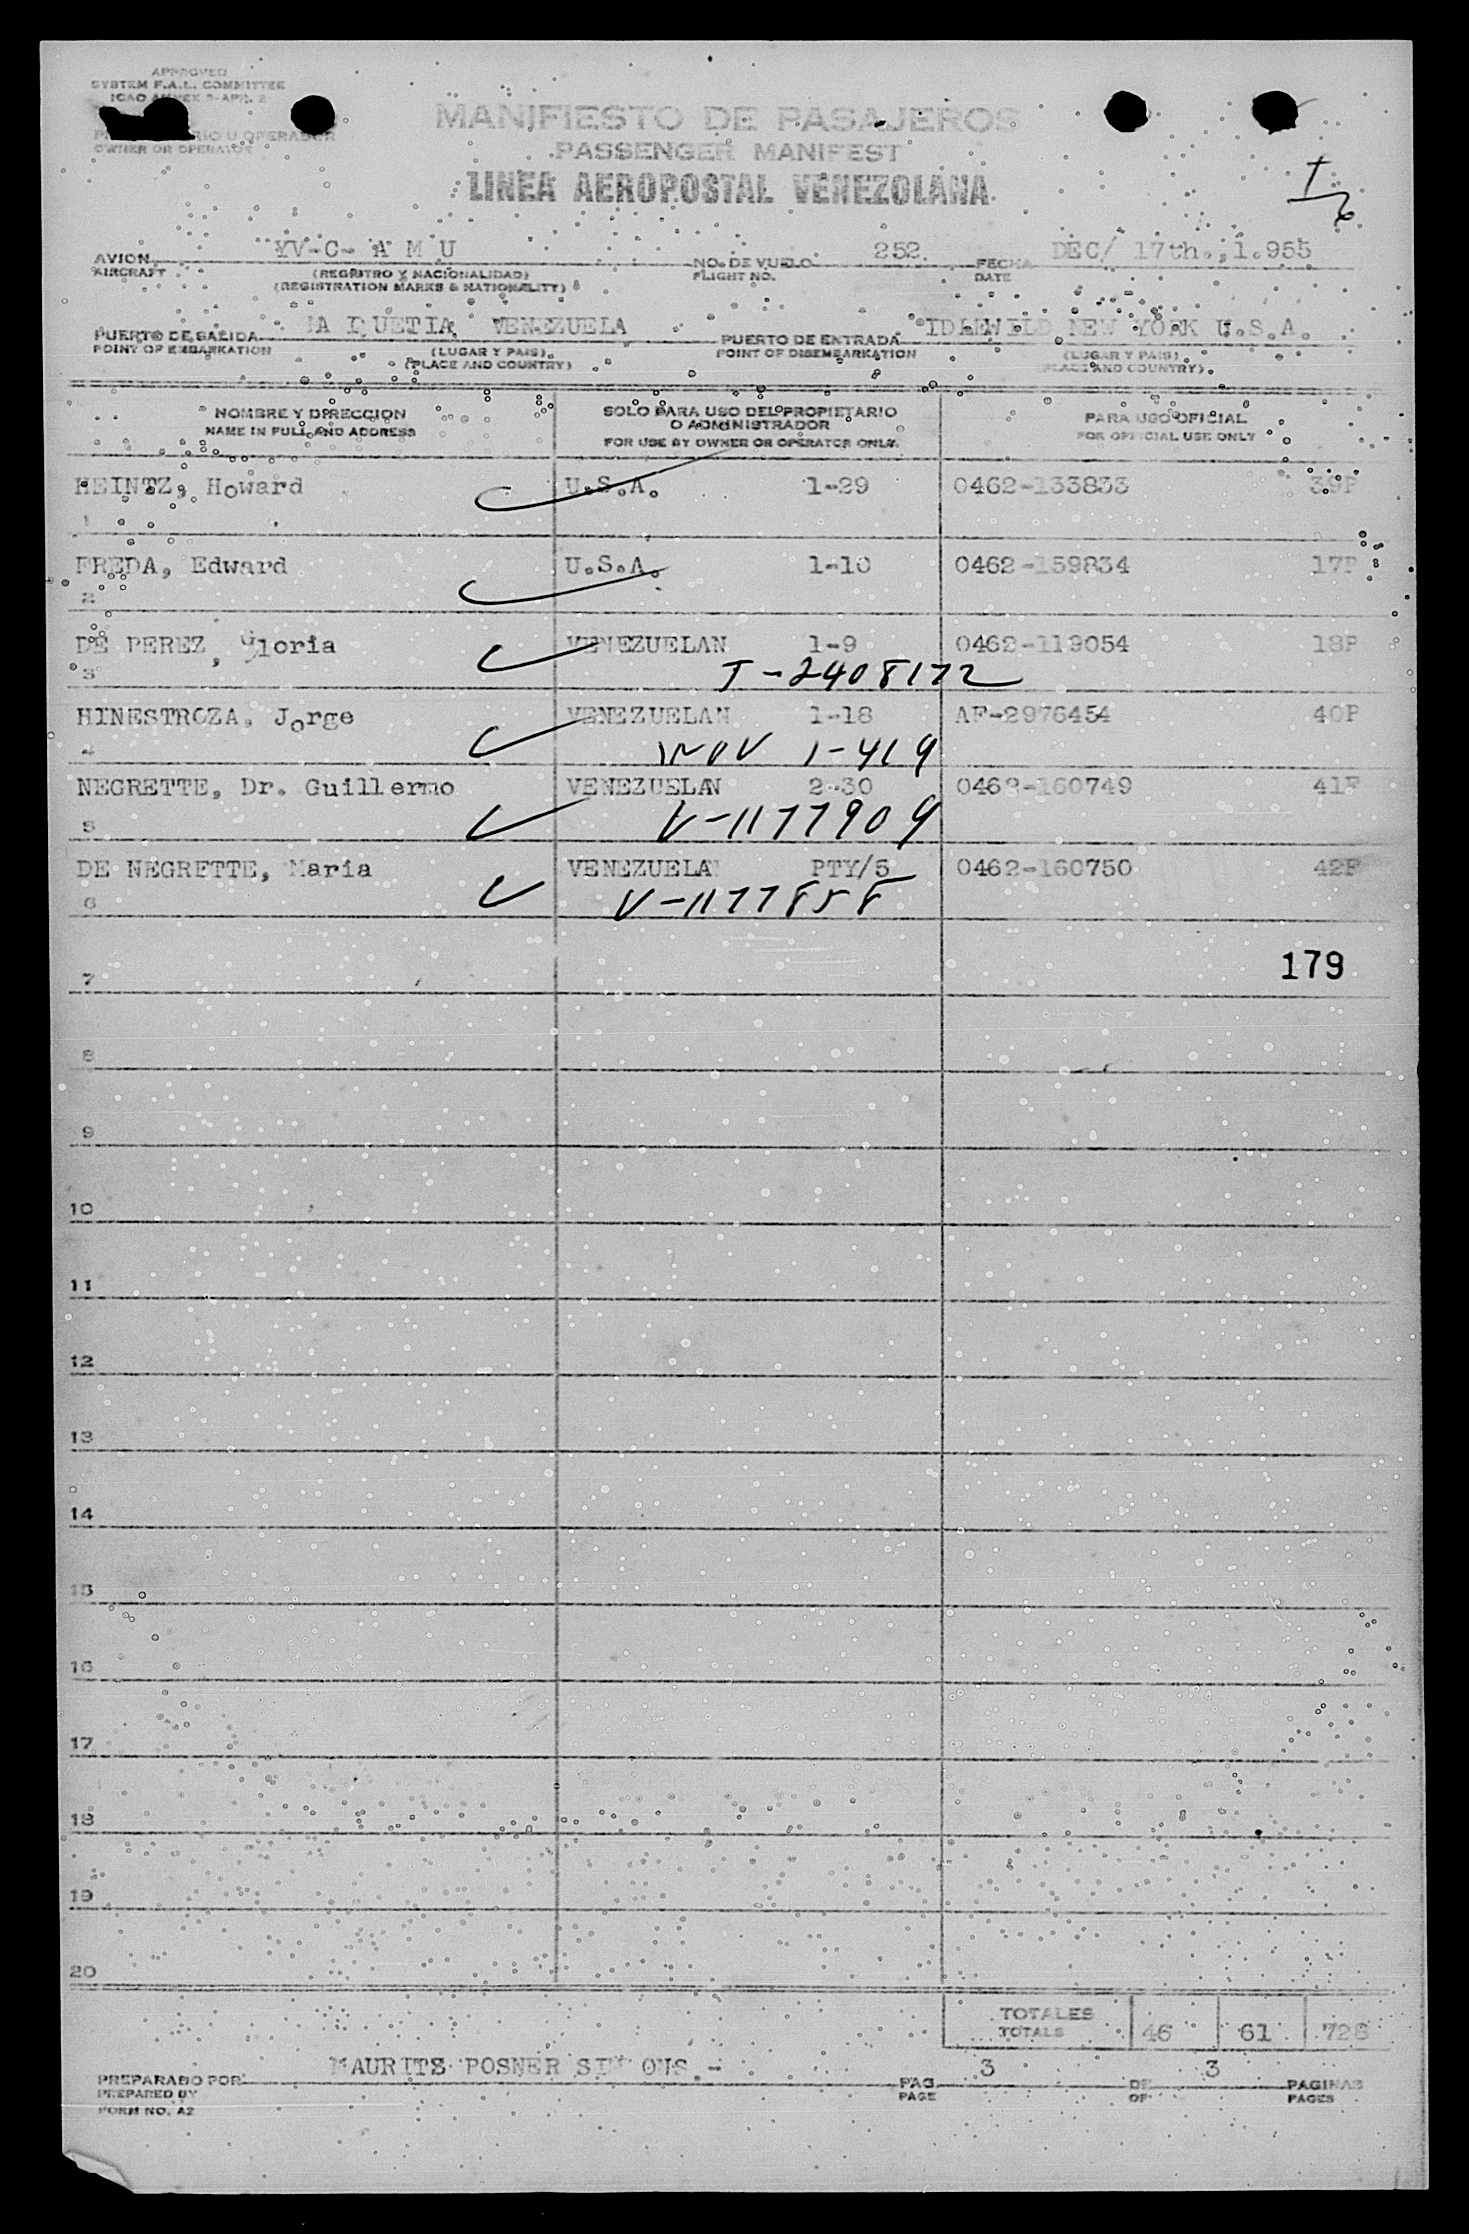 APPROVED
SYSTEM F.A.L. COMMITTEE
ICAO ANNEX 9-APR. 2
OWNER OR OPERATOR
MANIFIESTO DE PASAJEROS
PASSENGER MANIFEST
LINEA AEROPOSTAL VENEZOLANA
AVION YV-C- A M U NO. DE VUELO 252 FECHA DEC/ 17th.,1.955
AIRCRAFT (REGISTRO Y NACIONALIDAD) FLIGHT NO. DATE
(REGISTRATION MARKS & NATIONALITY)
PUERTO DE SALIDA VENEZUELA PUERTO DE ENTRADA IDLEWILD NEW YORK U.S.A.
POINT OF EMBARKATION (LUGAR Y PAIS) POINT OF DISEMBARKATION (LUGAR Y PAIS)
(PLACE AND COUNTRY) (PLACE AND COUNTRY)
NOMBRE Y DIRECCION SOLO PARA USO DEL PROPIETARIO PARA USO OFICIAL
NAME IN FULL AND ADDRESS O ADMINISTRADOR FOR OFFICIAL USE ONLY
FOR USE BY OWNER OR OPERATOR ONLY.
HEINTZ, Howard U.S.A. 1-29 0462-133833 39P
1
FREDA, Edward U.S.A. 1-10 0462-159834 17P
2
DE PEREZ, Gloria VENEZUELAN 1-9 0462-119054 18P
3 T-2408172
HINESTROZA, Jorge VENEZUELAN 1-18 AF-2976454 40P
4 1-419
NEGRETTE, Dr. Guillermo VENEZUELAN 2-30 0462-160749 41P
5 V-1177909
DE NEGRETTE, Maria VENEZUELAN PTY/5 0462-160750 42P
6 V-1177858
179
7
8
9
10
11
12
13
14
15
16
17
18
19
20
TOTALES
TOTALS 46 61 728
PREPARADO POR MAURITS POSNER PAG. 3 DE 3 PAGINAS
PREPARED BY PAGE OF PAGES
FORM NO. A2